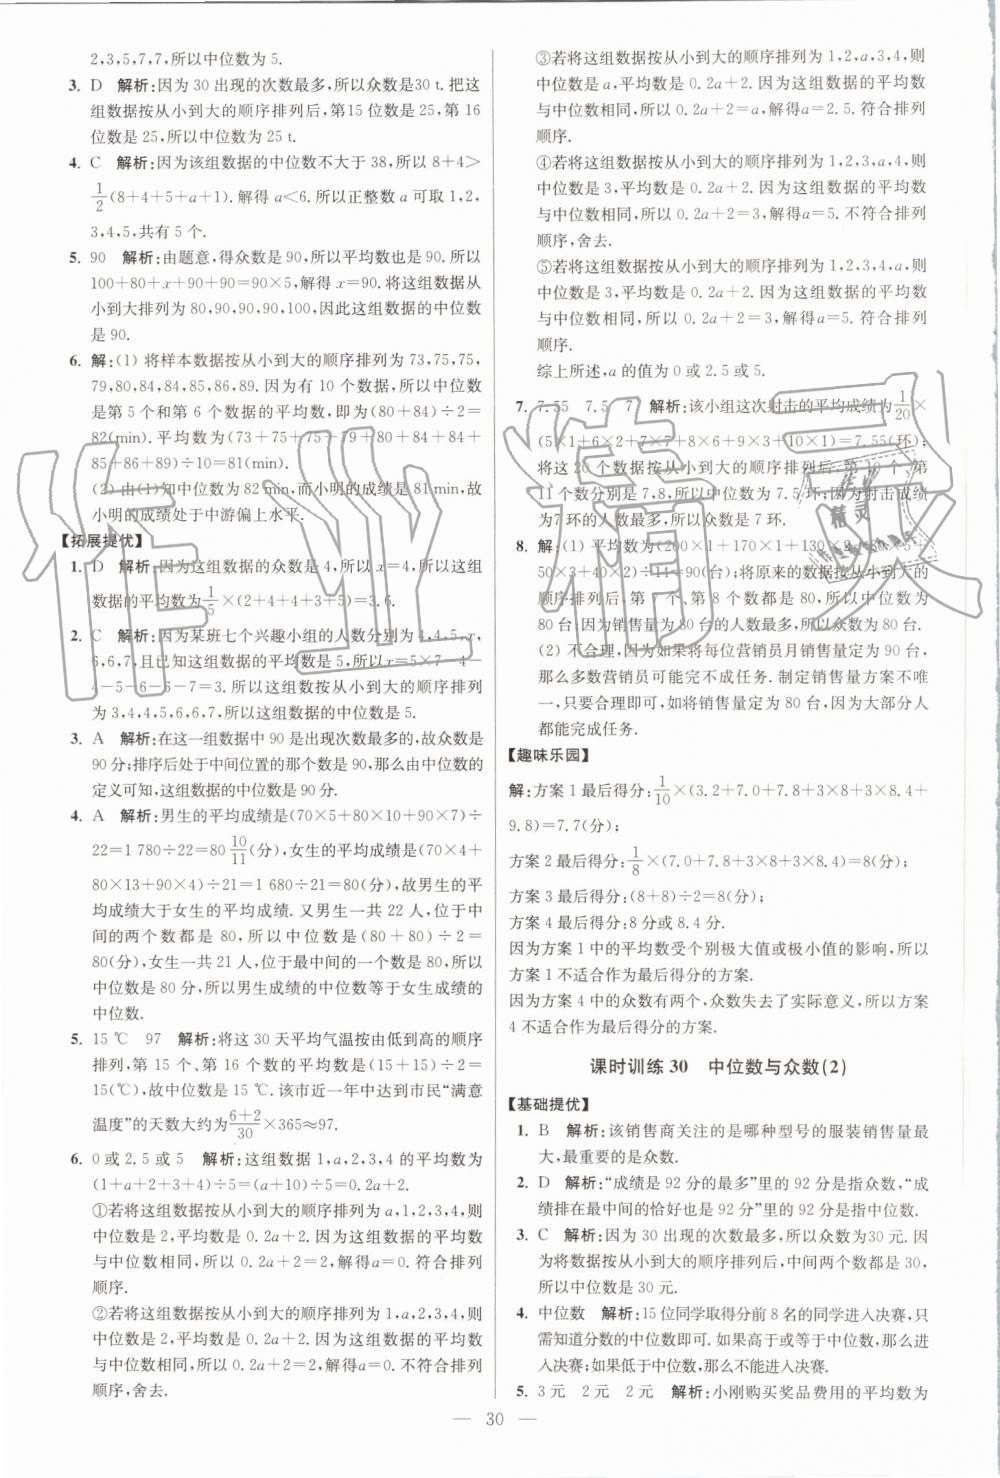 2,3,5,7,7,所以中位数为5.
3. D 解析:因为30出现的次数最多,所以众数是30 t.把这
组数据按从小到大的顺序排列后,第15位数是25,第16
位数是25,所以中位数为25 t.
4. C 解析:因为该组数据的中位数不大于38,所以8+4>
1/2(8+4+5+a+1).解得a<6.所以正整数a可取1,2,
3,4,5,共有5个.
5. 90 解析:由题意,得众数是90,所以平均数也是90.所以
100+80+x+90+90=90×5,解得x=90.将这组数据从
小到大排列为80,90,90,90,100,因此这组数据的中位数
是90.
6. 解:(1) 将样本数据按从小到大的顺序排列为73,75,75,
79,80,84,84,85,86,89.因为有10个数据,所以中位数
是第5个和第6个数据的平均数,即为(80+84)÷2=
82(min).平均数为(73+75+75+79+80+84+84+
85+86+89)÷10=81(min).
(2) 由(1)知中位数为82 min,而小明的成绩是81 min,故
小明的成绩处于中游偏上水平.
【拓展提优】
1. D 解析:因为这组数据的众数是4,所以x=4,所以这组
数据的平均数为1/5×(2+4+4+3+5)=3.6.
2. C 解析:因为某班七个兴趣小组的人数分别为4,4,5,x,
6,6,7,且已知这组数据的平均数是5,所以x=5×7-4-
4-5-6-6-7=3.所以这组数据从小到大的顺序排列
为3,4,4,5,6,6,7,所以这组数据的中位数是5.
3. A 解析:在这一组数据中90是出现次数最多的,故众数是
90分;排序后处于中间位置的那个数是90,那么由中位数的
定义可知,这组数据的中位数是90分.
4. A 解析:男生的平均成绩是(70×5+80×10+90×7)÷
22=1 780÷22=80 10/11(分),女生的平均成绩是(70×4+
80×13+90×4)÷21=1 680÷21=80(分),故男生的平
均成绩大于女生的平均成绩.又男生一共22人,位于中
间的两个数都是80,所以中位数是(80+80)÷2=
80(分),女生一共21人,位于最中间的一个数是80,所以
中位数是80分,所以男生成绩的中位数等于女生成绩的
中位数.
5. 15 ℃ 97 解析:将这30天平均气温按由低到高的顺序
排列,第15个、第16个数的平均数是(15+15)÷2=
15(℃),故中位数是15 ℃.该市近一年中达到市民“满意
温度”的天数大约为(6+2)/30×365≈97.
6. 0或2.5或5 解析:这组数据1,a,2,3,4的平均数为
(1+a+2+3+4)÷5=(a+10)÷5=0.2a+2.
①若将这组数据按从小到大的顺序排列为a,1,2,3,4,则
中位数是2,平均数是0.2a+2.因为这组数据的平均数
与中位数相同,所以0.2a+2=2,解得a=0.符合排列
顺序.
②若将这组数据按从小到大的顺序排列为1,a,2,3,4,则
中位数是2,平均数是0.2a+2.因为这组数据的平均数
与中位数相同,所以0.2a+2=2,解得a=0.不符合排列
顺序,舍去.
③若将这组数据按从小到大的顺序排列为1,2,a,3,4,则
中位数是a,平均数是0.2a+2.因为这组数据的平均数
与中位数相同,所以0.2a+2=a,解得a=2.5.符合排列
顺序.
④若将这组数据按从小到大的顺序排列为1,2,3,a,4,则
中位数是3,平均数是0.2a+2.因为这组数据的平均数
与中位数相同,所以0.2a+2=3,解得a=5.不符合排列
顺序,舍去.
⑤若将这组数据按从小到大的顺序排列为1,2,3,4,a,则
中位数是3,平均数是0.2a+2.因为这组数据的平均数
与中位数相同,所以0.2a+2=3,解得a=5.符合排列
顺序.
综上所述,a的值为0或2.5或5.
7. 7.55 7.5 7 解析:该小组这次射击的平均成绩为1/20×
(5×1+6×2+7×7+8×6+9×3+10×1)=7.55(环);
将这20个数据按从小到大的顺序排列后,第10个、第
11个数分别是7,8,所以中位数为7.5环;因为射击成绩
为7环的人数最多,所以众数是7环.
8. 解:(1) 平均数为(200×1+170×1+130×2+80×5+
50×3+40×2)÷14=90(台);将原来的数据按从小到大的
顺序排列后,第7个、第8个数都是80,所以中位数是
80台;因为销售量为80台的人数最多,所以众数为80台.
(2) 不合理,因为如果将每位营销员月销售量定为90台,
那么多数营销员可能完不成任务.制定销售量方案不唯
一,只要合理即可,如将销售量定为80台,因为大部分人
都能完成任务.
【趣味乐园】
解:方案1最后得分:1/10×(3.2+7.0+7.8+3×8+3×8.4+
9.8)=7.7(分);
方案2最后得分:1/8×(7.0+7.8+3×8+3×8.4)=8(分);
方案3最后得分:(8+8)÷2=8(分);
方案4最后得分:8分或8.4分.
因为方案1中的平均数受个别极大值或极小值的影响,所以
方案1不适合作为最后得分的方案.
因为方案4中的众数有两个,众数失去了实际意义,所以方案
4不适合作为最后得分的方案.
课时训练30 中位数与众数(2)
【基础提优】
1. B 解析:该销售商关注的是哪种型号的服装销售量最
大,最重要的是众数.
2. D 解析:“成绩是92分的最多”里的92分是指众数,“成
绩排在最中间的恰好也是92分”里的92分是指中位数.
3. C 解析:因为30出现的次数最多,所以众数为30元.因
为将数据按从小到大的顺序排列后,中间两个数都是30,
所以中位数是30元.
4. 中位数 解析:15位同学取得分前8名的同学进入决赛,只
需知道分数的中位数即可.如果高于或等于中位数,那么进入
决赛;如果低于中位数,那么不能进入决赛.
5. 3元 2元 2元 解析:小刚购买奖品费用的平均数为
— 30 —
作业精灵
作业
精灵